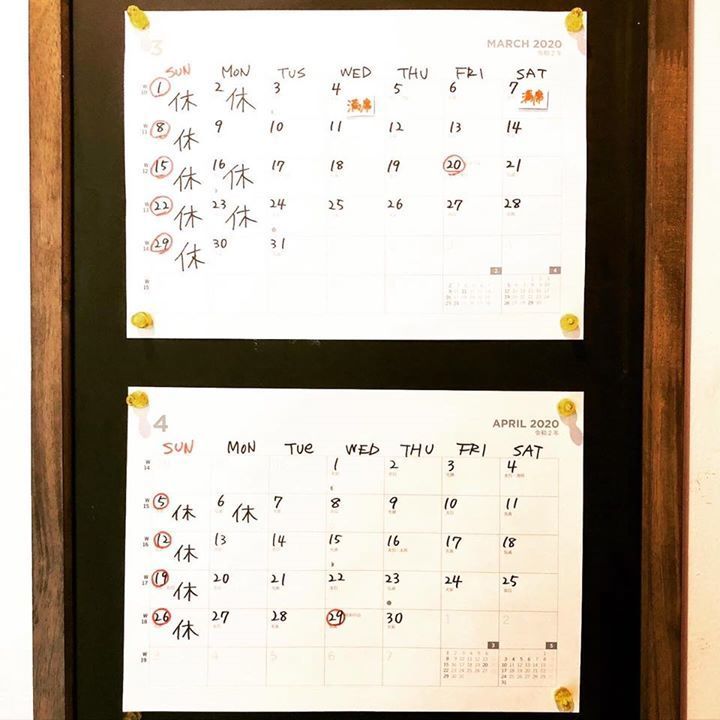 3 MARCH 2020
令和2年
SUN MON TUS WED THU FRI SAT
W 10 1 休 2 休 3 4 満席 5 6 7 満席
W 11 8 休 9 10 11 12 13 14
W 12 15 休 16 休 17 18 19 20 21
W 13 22 休 23 休 24 25 26 27 28
W 14 29 休 30 31
W 15
4 APRIL 2020
令和2年
SUN MON TUE WED THU FRI SAT
W 14 1 2 3 4
W 15 5 休 6 休 7 8 9 10 11
W 16 12 休 13 14 15 16 17 18
W 17 19 休 20 21 22 23 24 25
W 18 26 休 27 28 29 30 1 2
W 19 3 4 5 6 7